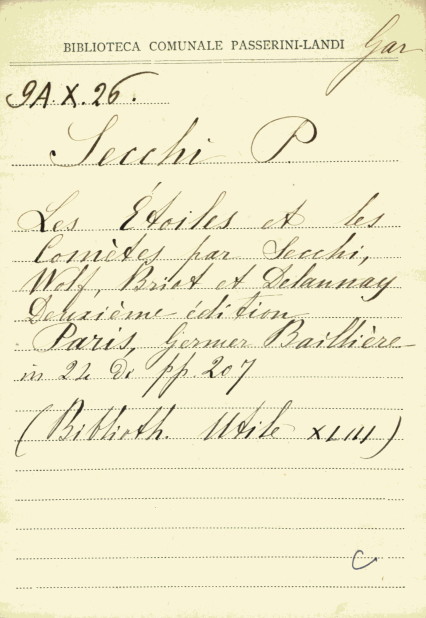 BIBLIOTECA COMUNALE PASSERINI-LANDI
Gar
9A.X.26.
Secchi P.
Les Étoiles et les
Comètes par Secchi,
Wolf, Briot et Delaunay
Deuxième édition
Paris, Germer Baillière
in 24 di pp. 207
(Biblioth. Utile XLIII)
C